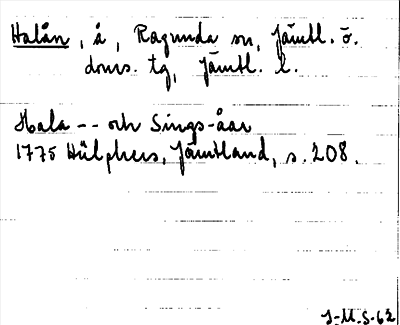 Halån, å, Ragunda sn, Jämtl. ö.
doms. tg, Jämtl. l.
Hala -- och Sings-åar
1775 Hülphers, Jämtland, s. 208.
J-M.S-62